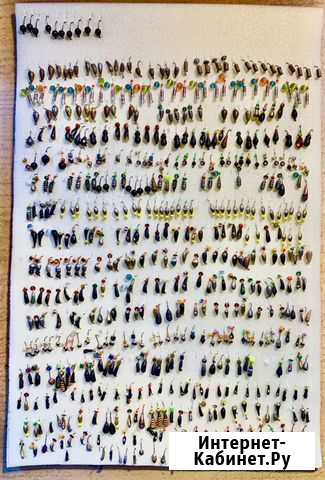 Интернет-
Кабинет.Ру